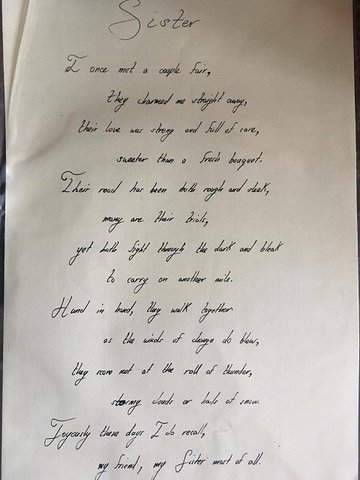 Sister
I once met a couple fair,
they charmed me straight away,
their love was strong and full of care,
sweeter than a fresh bouquet.
Their road has been both rough and sleek,
many are their trials,
yet both fight through the dark and bleak
to carry on another mile.
Hand in hand, they walk together
as the winds of change do blow,
they scare not at the roll of thunder,
stormy clouds or hails of snow.
Joyously these days I do recall,
my friend, my Sister most of all.